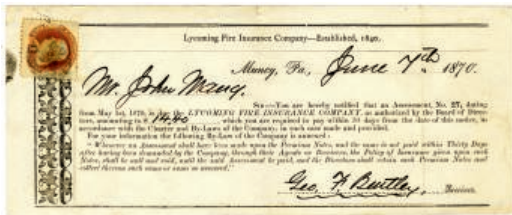 Lycoming Fire Insurance Company—Established, 1840.
Muncy, Pa., June 7th. 1870.
Mr. John Many.
SIR—You are hereby notified that an Assessment, No. 27, dating
from May 1st, 1870, in the LYCOMING FIRE INSURANCE COMPANY, as authorized by the Board of Direc-
tors, amounting to $ 14.40 which you are required to pay within 30 days from the date of this notice, in
accordance with the Charter and By-Laws of the Company, in such case made and provided.
For your information the following By-Law of the Company is annexed:
"Whenever an Assessment shall have been made upon the Premium Notes, and the same is not paid within Thirty Days
after having been demanded by the Company, through their Agents or Receivers, the Policy of Insurance given upon such
Notes, shall be null and void, until the said Assessment be paid, and the Directors shall retain such Premium Notes and
collect thereon such sum or sums as assessed."
Geo. F. Bentley, Receiver.